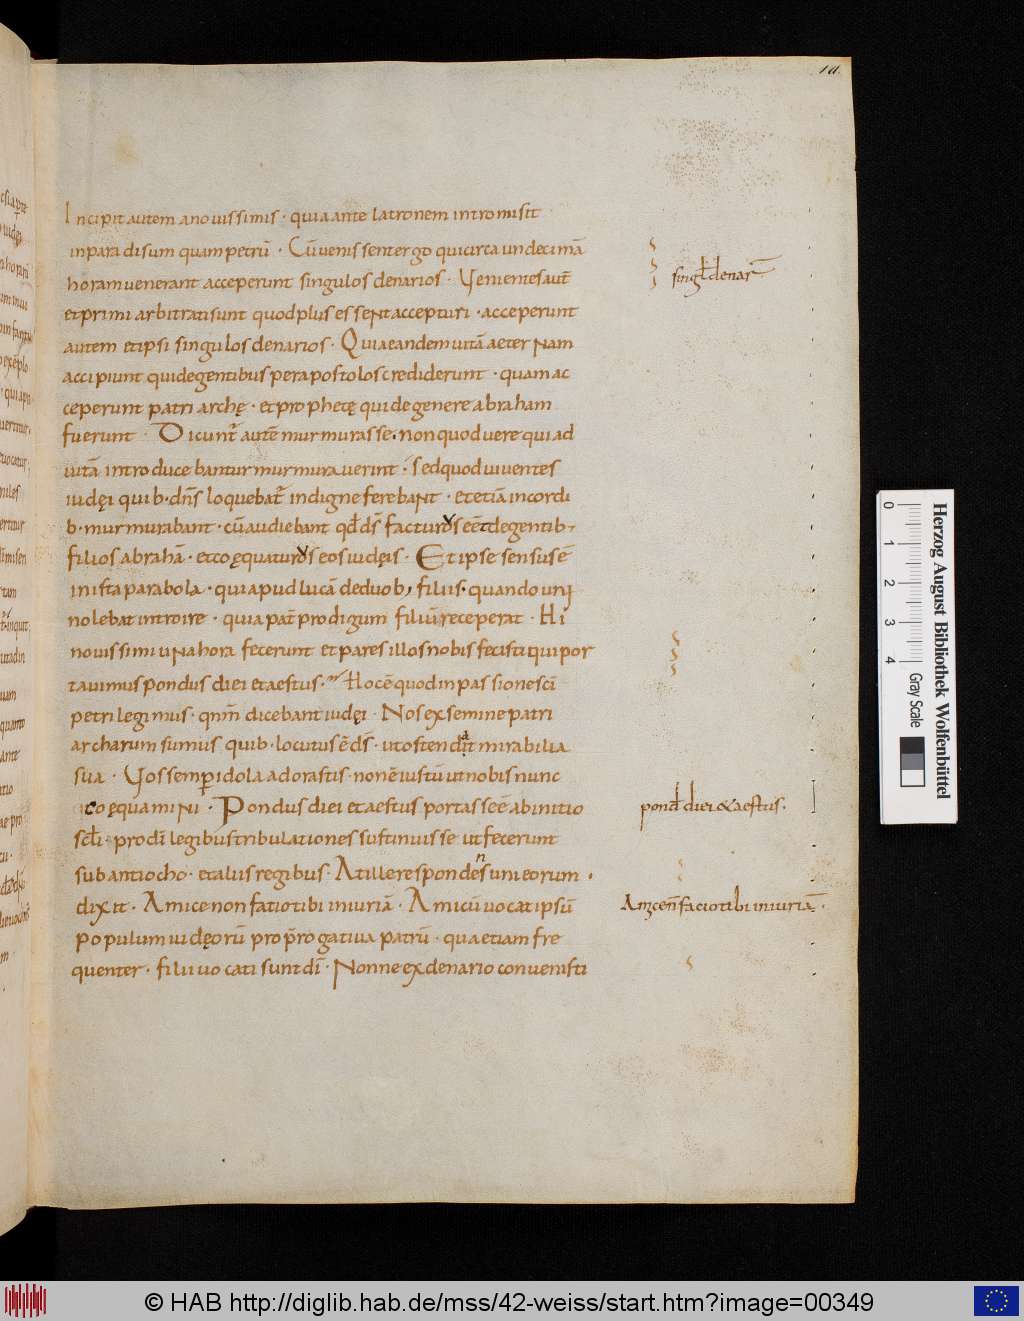 Incipit autem anouissimis · quia ante latronem intromisit
inparadisum quam petrū · Cū uenissent ergo qui circa undecimā
horam uenerant acceperunt singulos denarios · Venientes aut̄
singl̄ denar̄
et primi arbitrati sunt quod plus essent accepturi · acceperunt
autem et ipsi singulos denarios · Quia eandem uitā aeternam
accipiunt qui de gentibus per apostolos crediderunt · quam ac
ceperunt patriarchę · et prophetę qui de genere abraham
fuerunt · Dicunt̄ autē murmurasse · non quod uere qui ad
uitā introducebantur murmurauerint · sed quod uiuentes
iudęi quib · dn̄s loquebat̄ indigne ferebant · et etiā in cordi
b · murmurabant · cū audiebant qd̄ ds̄ facturus eēt de gentib,
filios abrahā · et coęquaturus eos iudęis · Et ipse sensus ē
in ista parabola · qui apud lucā de duob, filiis · quando unus
nolebat introire · quia pat̄ prodigum filiū receperat · Hi
nouissimi una hora fecerunt et pares illos nobis fecisti qui por
tauimus pondus diei et aestus · Hoc ē quod in passione sc̄i
petri legimus · qn̄m dicebant iudęi · Nos ex semine patri
archarum sumus quib · locutus ē ds̄ · ut ostendat mirabilia
sua · Vos semper idola adorastis · non ē iustū ut nobis nunc
coęquamini · Pondus diei et aestus portasse ē ab initio
pond̄ diei & aestus ·
scl̄i · pro dī legibus tribulationes sustinuisse ut fecerunt
sub antiocho · et aliis regibus · At ille respondens uni eorum ·
dixit · Amice non fatio tibi iniuriā · Amicū uocat ipsū
Amice n̄ facio tibi iniuriā ·
populum iudęorū pro p̄rogatiua patrū · qua etiam fre
quenter · filii uocati sunt dī · Nonne ex denario conuenisti
0 1 2 3 4
Gray Scale
Herzog August Bibliothek Wolfenbüttel
© HAB http://diglib.hab.de/mss/42-weiss/start.htm?image=00349